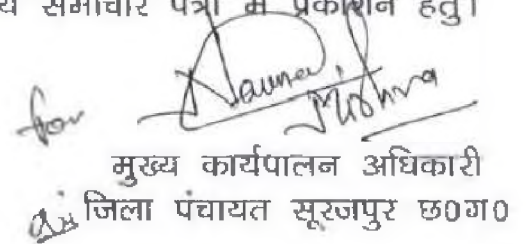 य समाचार पत्रों में प्रकाशन हेतु।
for
मुख्य कार्यपालन अधिकारी
जिला पंचायत सूरजपुर छ0ग0